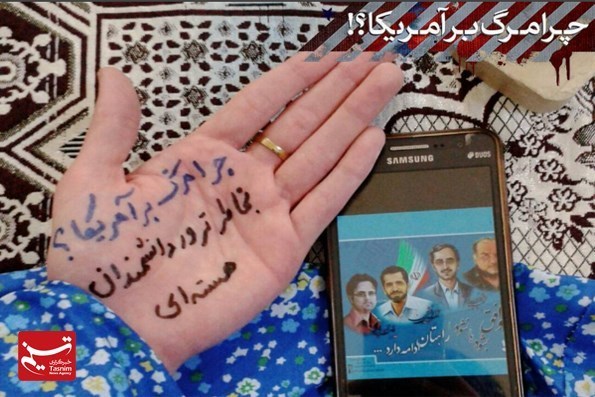 چرا مرگ بر آمریکا؟!
چرا مرگ بر آمریکا؟
بخاطر ترور دانشمندان
هسته‌ای
SAMSUNG
DUOS
راهتان
ادامه دارد ...
تسنیم
خبرگزاری
Tasnim
News Agency